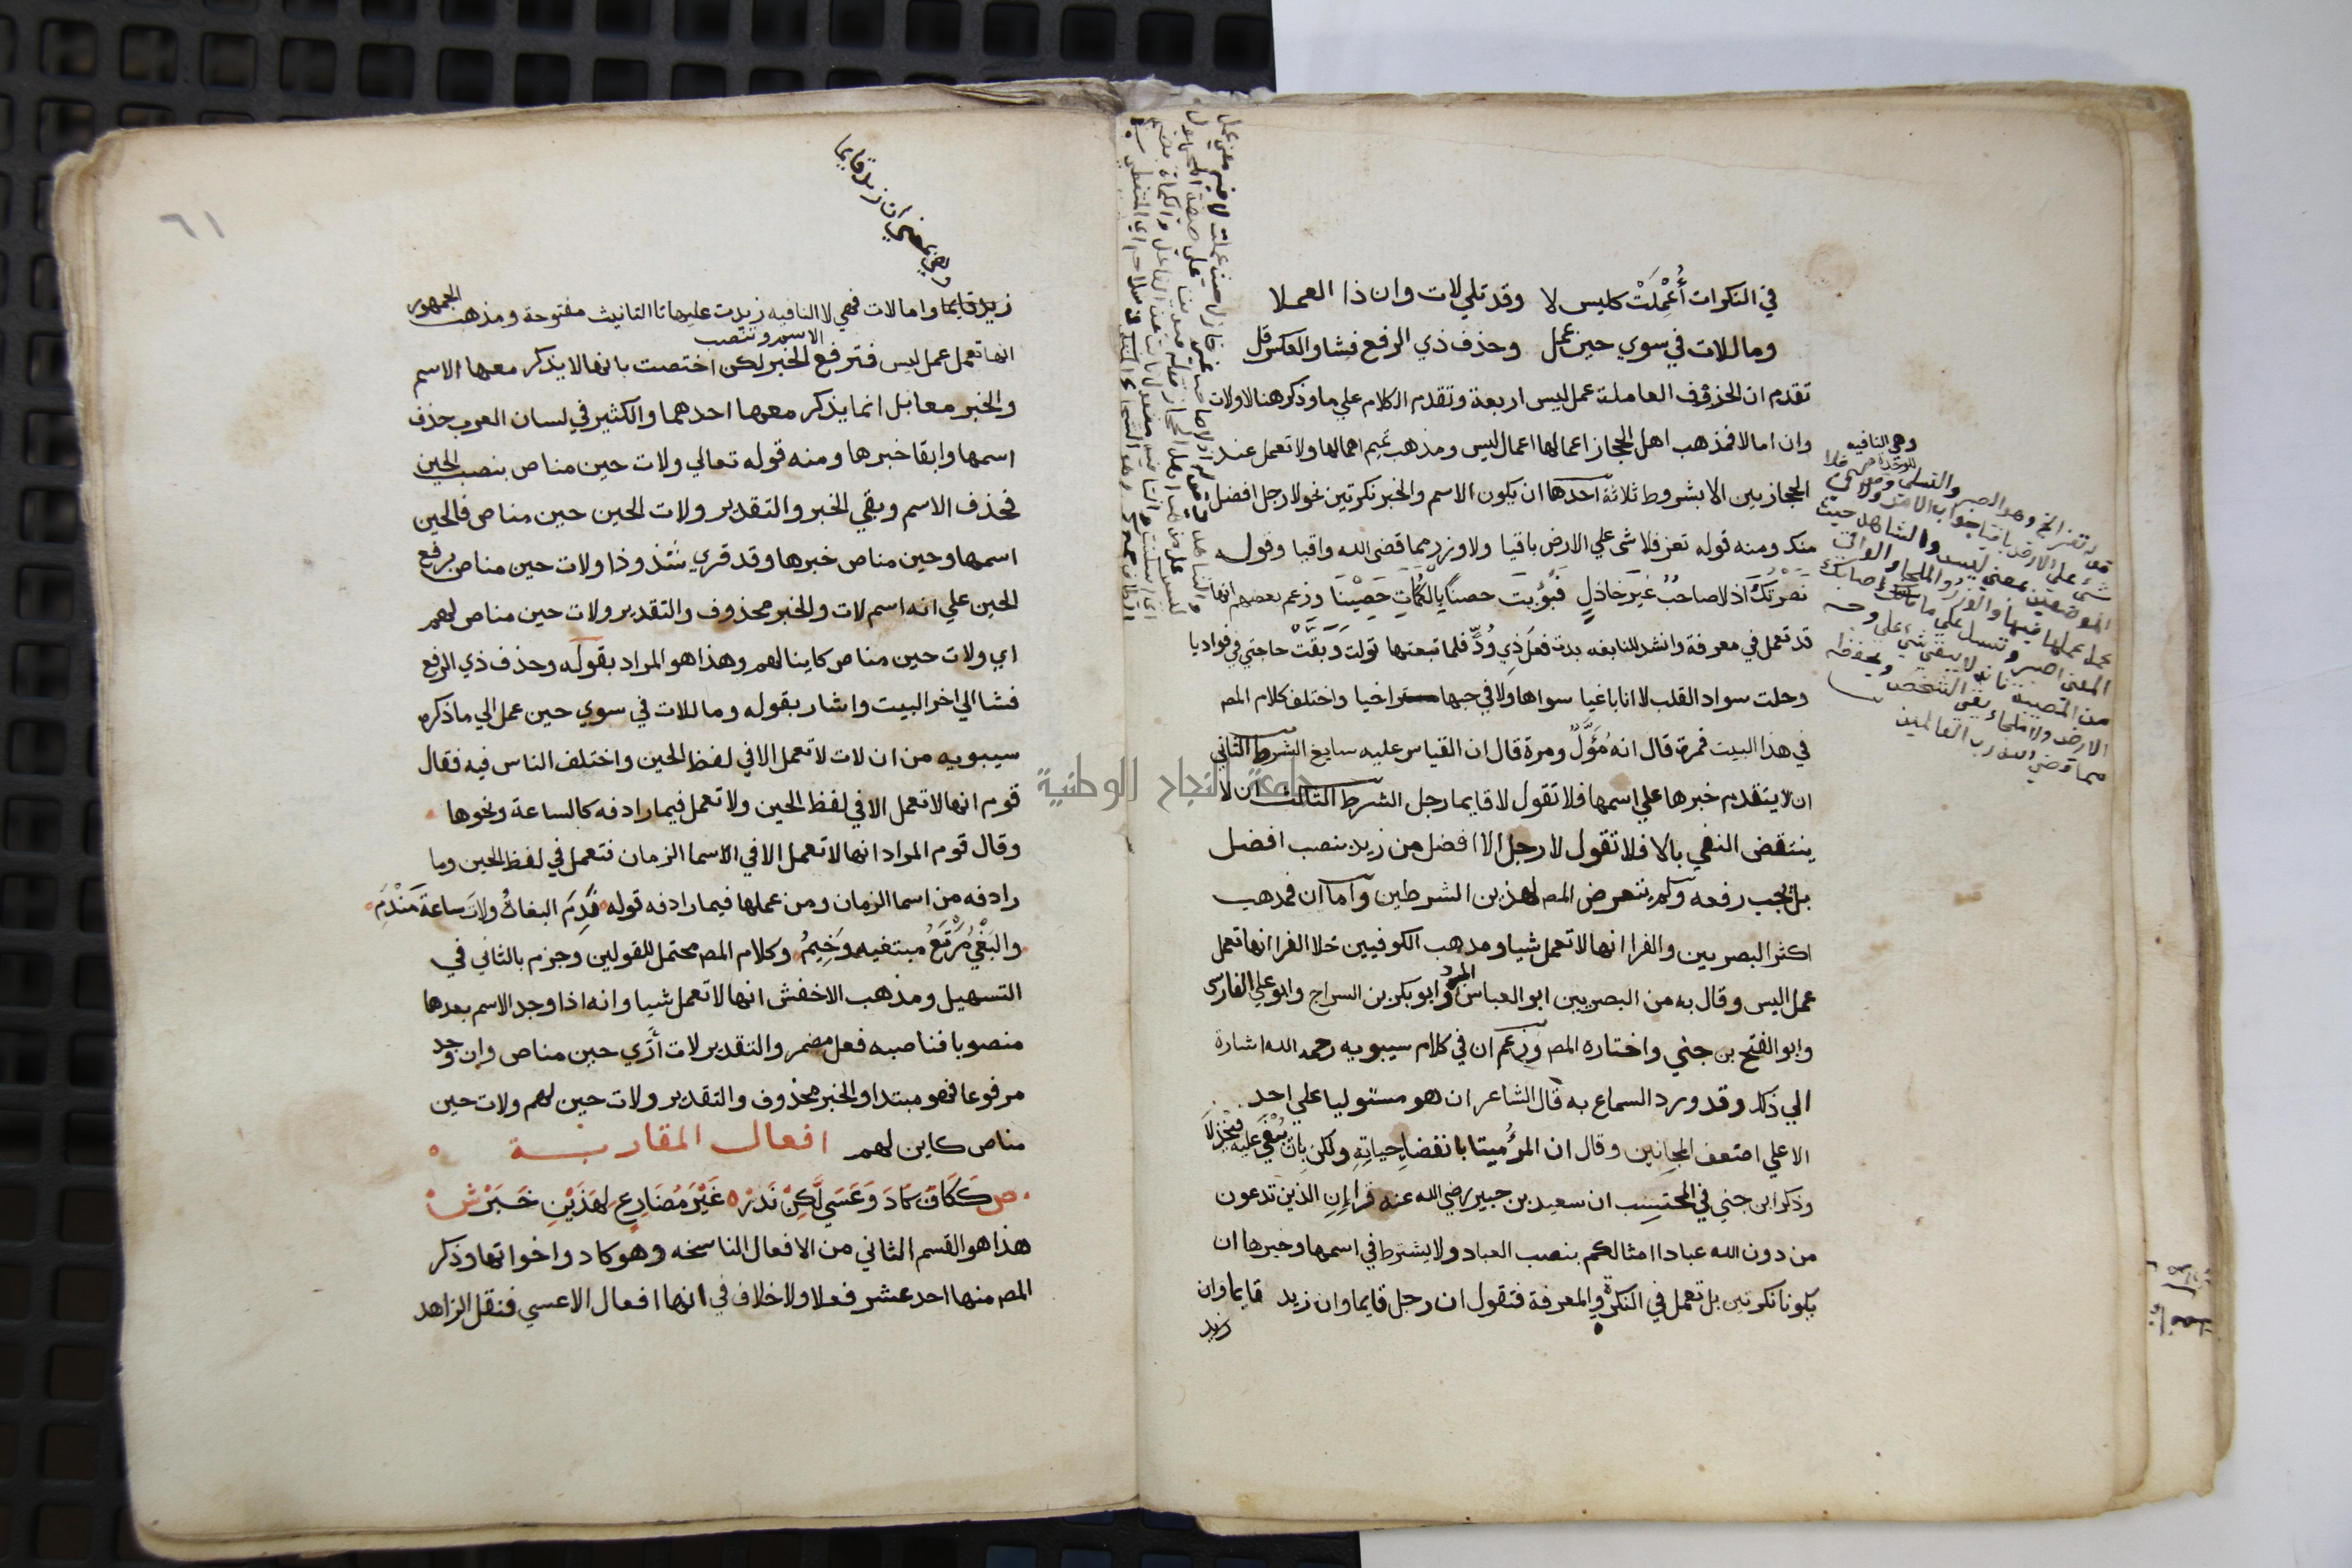 في النكرات أُعْمِلَتْ كليس لا وقد تلي لات وان ذا العملا
وما للات في سوي حين عمل وحذف ذي الرفع فشا والعكس قل
تقدم ان الحروف العاملة عمل ليس اربعة وتقدم الكلام علي ما وذكر هنا لا ولات
وان اما لا فمذهب اهل الحجاز اعمالها اعمال ليس ومذهب تميم اهمالها ولا تعمل عند
الحجازيين الا بشروط ثلاثة احدها ان يكون الاسم والخبر نكرتين نحو لا رجل افضل
منك ومنه قوله تعز فلا شي علي الارض باقيا ولا وزر مما قضي الله واقيا وقوله
نَصَرْتُكَ اذ لا صاحبُ غيرَ خاذلٍ فبُوِّيتَ حصنًا بالكُماتِ حَصِيْنَا وزعم بعضهم انها
قد تعمل في معرفة وانشد للنابغه بدت فعلَ ذِي وُدٍّ فلما تبعتها تولت وَبَقَّتْ حاجتي في فواديا
وحلت سواد القلب لا انا باغيا سواها ولا في حبها متراخيا واختلف كلام المص
في هذا البيت فمرة قال انه مُؤَوَّلٌ ومرة قال ان القياس عليه سايغ الشرط الثاني
ان لا يتقدم خبرها علي اسمها فلا تقول لا قايما رجل الشرط الثالث ان لا
ينتقض النفي بالا فلا تقول لا رجل الا افضل من زيد بنصب افضل
بل يجب رفعه ولم يتعرض المص لهذين الشرطين واما ان فمذهب
اكثر البصريين والفرا انها لا تعمل شيا ومذهب الكوفيين خلا الفرا انها تعمل
عمل ليس وقال به من البصريين ابو العباس المبرد وابو بكر بن السراج وابو علي الفارسي
وابو الفتح بن جني واختاره المص وزعم ان في كلام سيبويه رحمه الله اشارة
الي ذلك وقد ورد السماع به قال الشاعر ان هو مستوليا علي احد
الا علي اضعف المجانين وقال ان المرُ ميتا بانقضاءِ حياتِهِ ولكن بِاَنْ يُبْغَي عليه فيُخْذَلَا
وذكر ابن جني في المحتسب ان سعيد بن جبير رضي الله عنه قرا إِنِ الذين تدعون
من دون الله عبادا امثالكم بنصب العباد ولا يشترط في اسمها وخبرها ان
يكونا نكرتين بل تعمل في النكرة والمعرفة فتقول ان رجل قايما وان زيد قايما وان
زيد
وهي النافيه
٦١
زيد قايما واما لات فهي لا النافيه زيدت عليها تا التانيث مفتوحة ومذهب الجمهور
الاسم وتنصب
انها تعمل عمل ليس فترفع الخبر لكن اختصت بانها لا يذكر معها الاسم
والخبر معا بل انما يذكر معها احدهما والكثير في لسان العرب حذف
اسمها وابقا خبرها ومنه قوله تعالي ولات حين مناص بنصب الحين
فحذف الاسم وبقي الخبر والتقدير ولات الحين حين مناص فالحين
اسمها وحين مناص خبرها وقد قري شذوذا ولات حين مناص برفع
الحين علي انه اسم لات والخبر محذوف والتقدير ولات حين مناص لهم
اي ولات حين مناص كاينا لهم وهذا هو المراد بقوله وحذف ذي الرفع
فشا الي اخر البيت واشار بقوله وما للات في سوي حين عمل الي ما ذكره
سيبويه من ان لات لا تعمل الا في لفظ الحين واختلف الناس فيه فقال
قوم انها لا تعمل الا في لفظ الحين ولا تعمل فيما رادفه كالساعة ونحوها
وقال قوم المراد انها لا تعمل الا في الاسما الزمان فتعمل في لفظ الحين وما
رادفه من اسما الزمان ومن عملها فيما رادفه قوله نَدِمَ البغاةُ ولاتَ ساعةَ مَنْدَمِ
والبَغْيُ مَرْتَعُ مبتغيه وَخِيمُ وكلام المص محتمل للقولين وجزم بالثاني في
التسهيل ومذهب الاخفش انها لا تعمل شيا وانه اذا وجد الاسم بعدها
منصوبا فناصبه فعل مضمر والتقدير لات أَرَي حين مناص وان وجد
مرفوعا فهو مبتدا والخبر محذوف والتقدير ولات حين لهم ولات حين
مناص كاين لهم افعال المقاربة
ص كَكَانَ كَادَ وَعَسَي لَكِنْ نَدَرْ غَيْرَ مُضَارِعٍ لِهَذَيْنِ خَبَرْ ش
هذا هو القسم الثاني من الافعال الناسخه وهو كاد واخواتها وذكر
المص منها احد عشر فعلا ولا خلاف في انها افعال الا عسي فنقل الزاهد
جامعة النجاح الوطنية